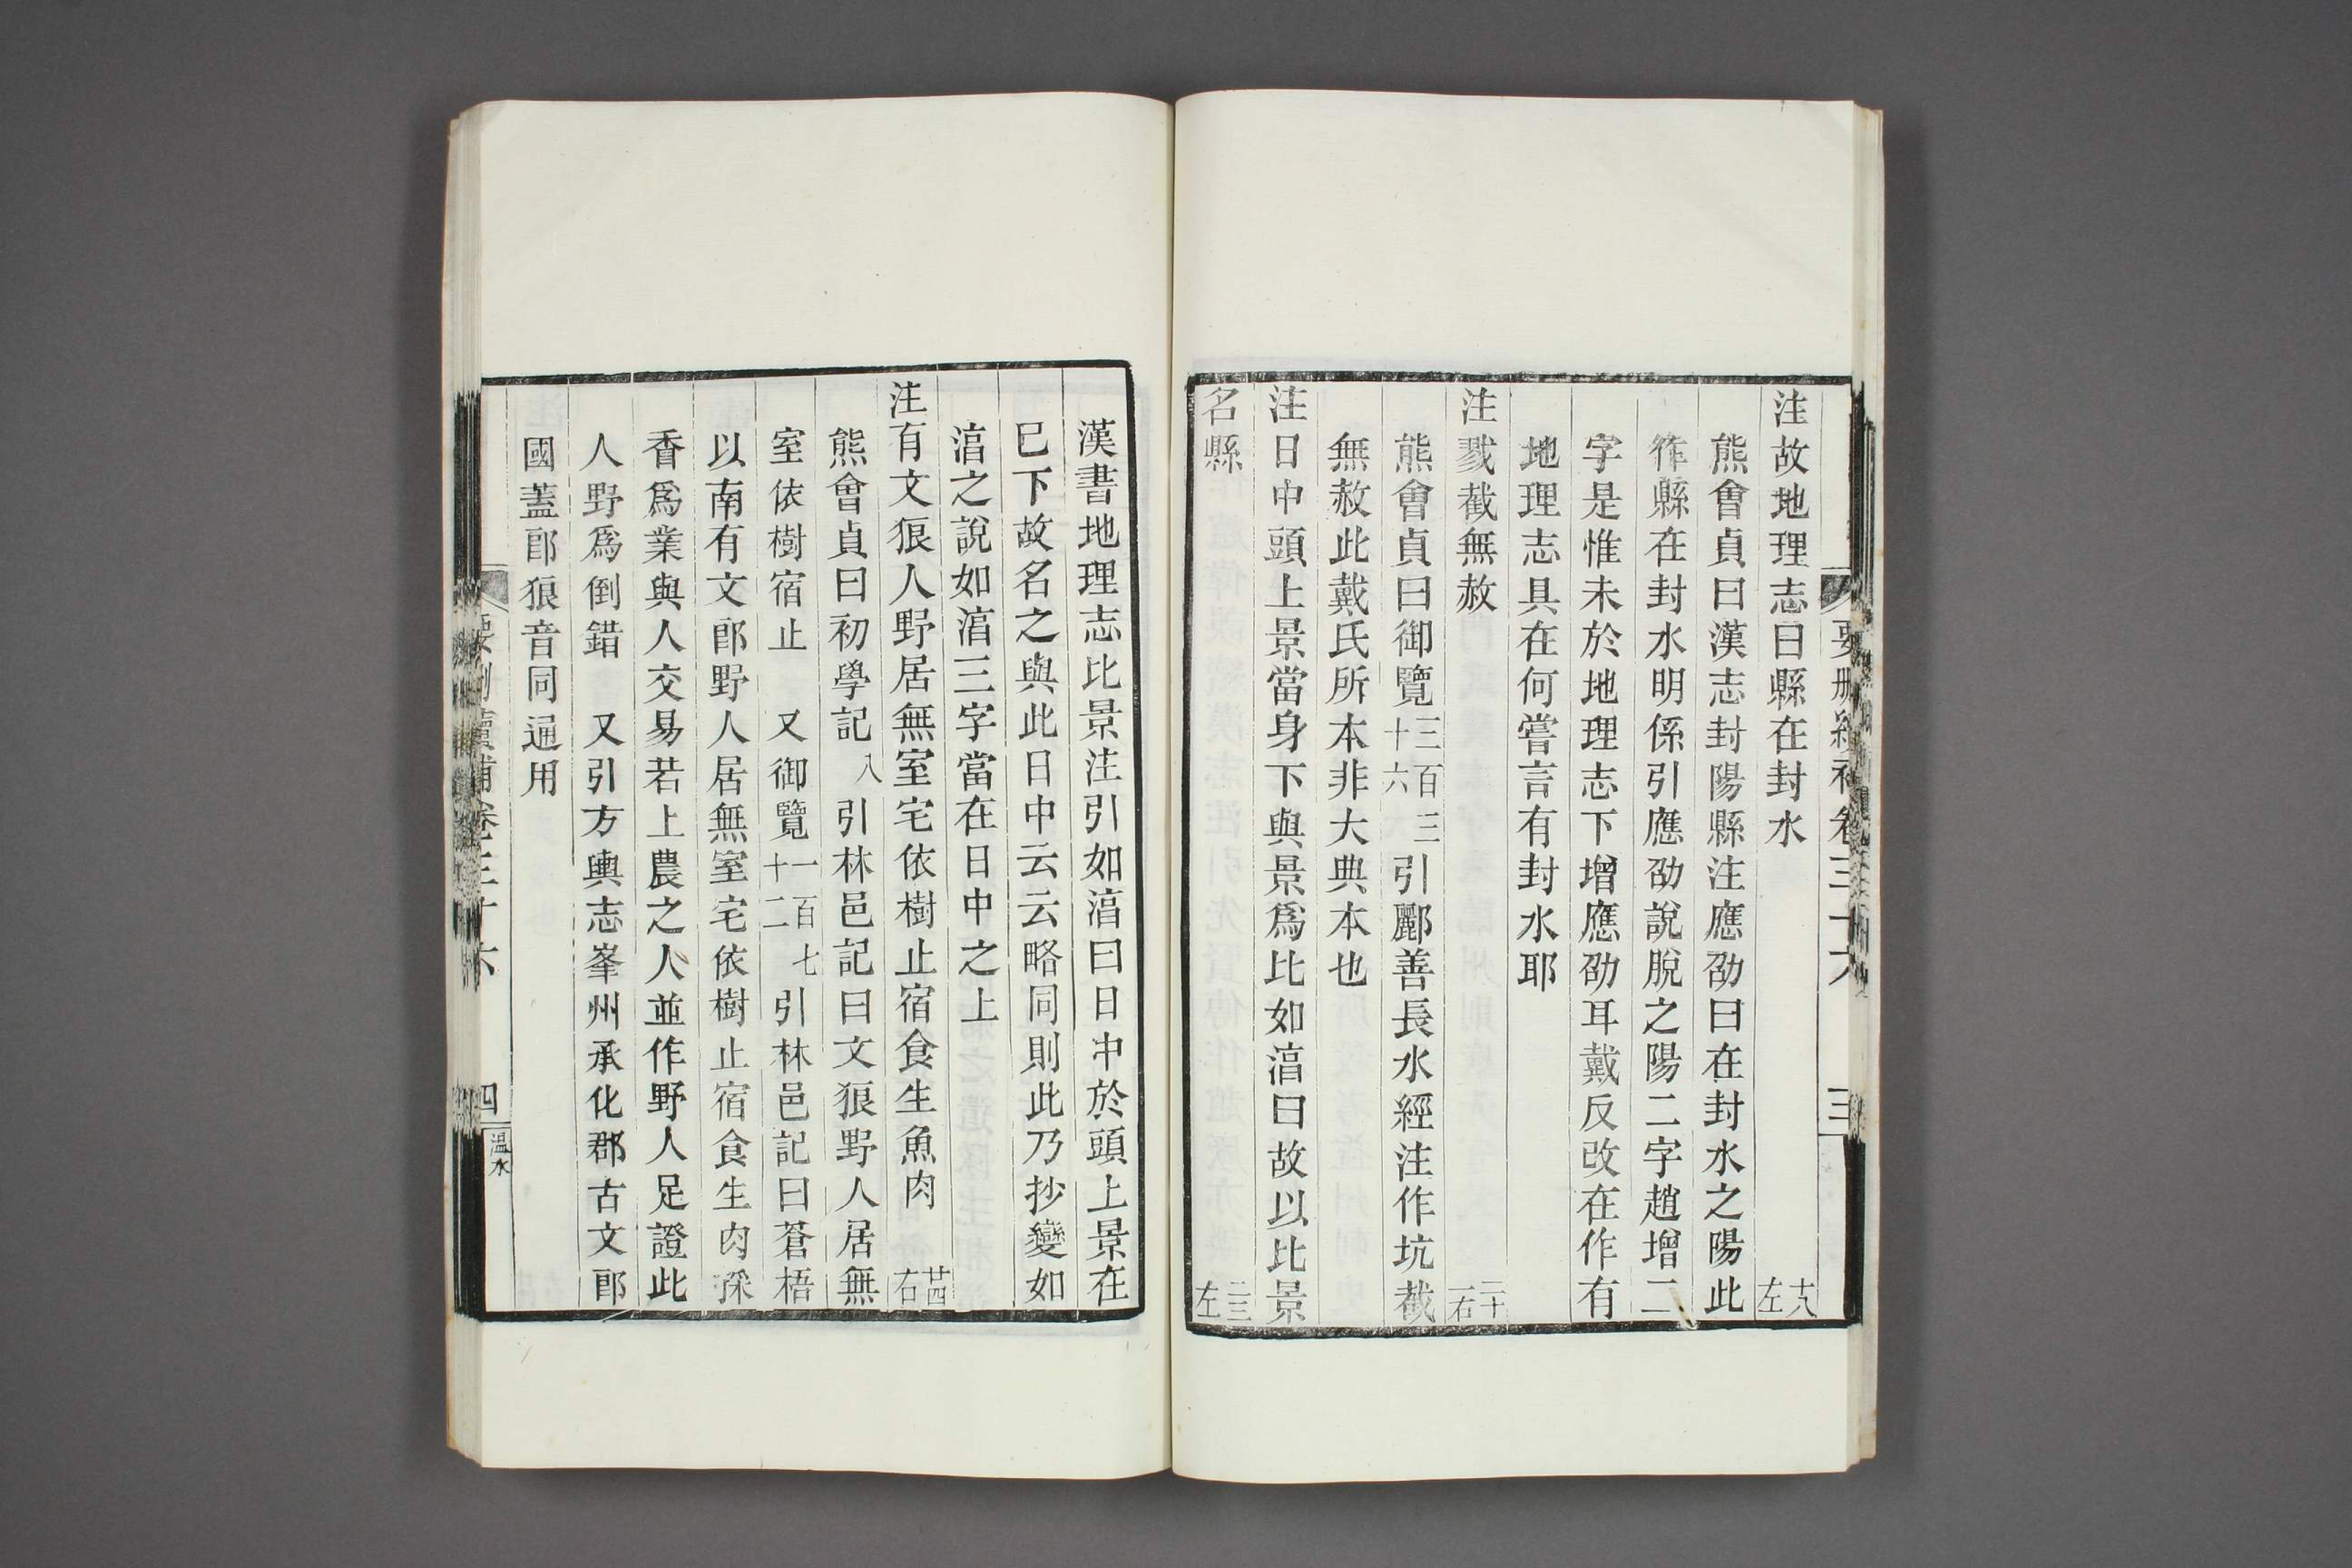 要刪 卷三十六 三
注故地理志曰縣在封水 十八左
熊會貞曰漢志封陽縣注應劭曰在封水之陽此
作縣在封水明係引應劭說脫之陽二字趙增二
字是惟未於地理志下增應劭耳戴反改在作有
地理志具在何嘗言有封水耶
注戮截無赦 二十一右
熊會貞曰御覽三百三十六引酈善長水經注作坑截
無赦此戴氏所本非大典本也
注日中頭上景當身下與景爲比如湻曰故以比景 二三左
名縣
漢書地理志比景注引如湻曰日中於頭上景在
巳下故名之與此日中云云略同則此乃抄變如
湻之說如湻三字當在日中之上
注有文狼人野居無室宅依樹止宿食生魚肉 廿四右
熊會貞曰初學記八引林邑記曰文狼野人居無
室依樹宿止 又御覽一百七十二引林邑記曰蒼梧
以南有文郎野人居無室宅依樹止宿食生肉採
香爲業與人交易若上農之人並作野人足證此
人野爲倒錯 又引方輿志峯州承化郡古文郎
國蓋郎狼音同通用
要刪續補卷三十六 四 溫水